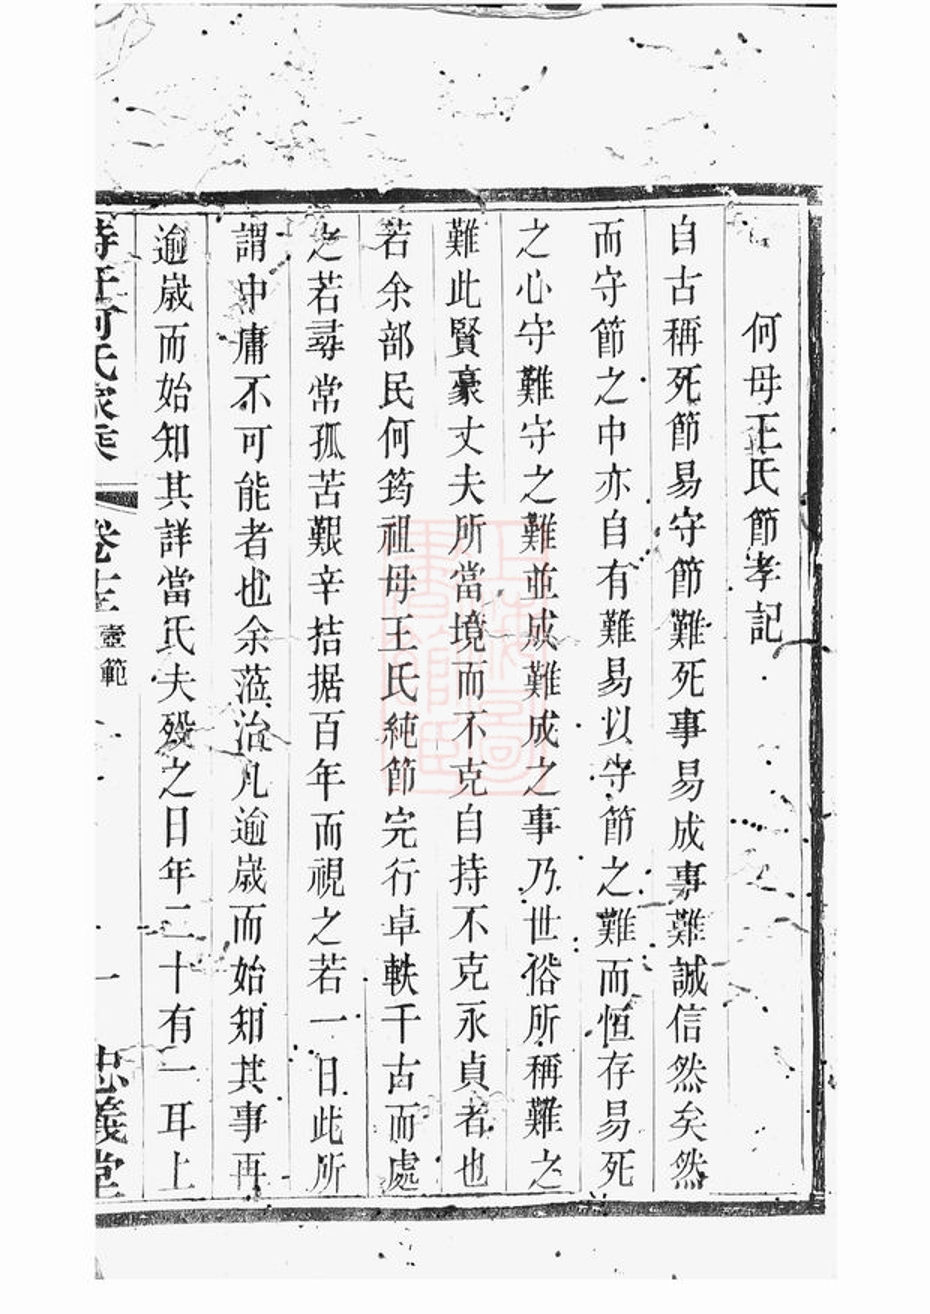 何母王氏節孝記
自古稱死節易守節難死事易成事難誠信然矣然
而守節之中亦自有難易以守節之難而恒存易死
之心守難守之難並成難成之事乃世俗所稱難之
難此賢豪丈夫所當境而不克自持不克永貞者也
若余部民何筠祖母王氏純節完行卓軼千古而處
之若尋常孤苦艱辛拮据百年而視之若一日此所
謂中庸不可能者也余蒞治凡逾歲而始知其事再
逾歲而始知其詳當氏夫歿之日年二十有一耳上
何氏家乘 卷 壼範 一 忠義堂